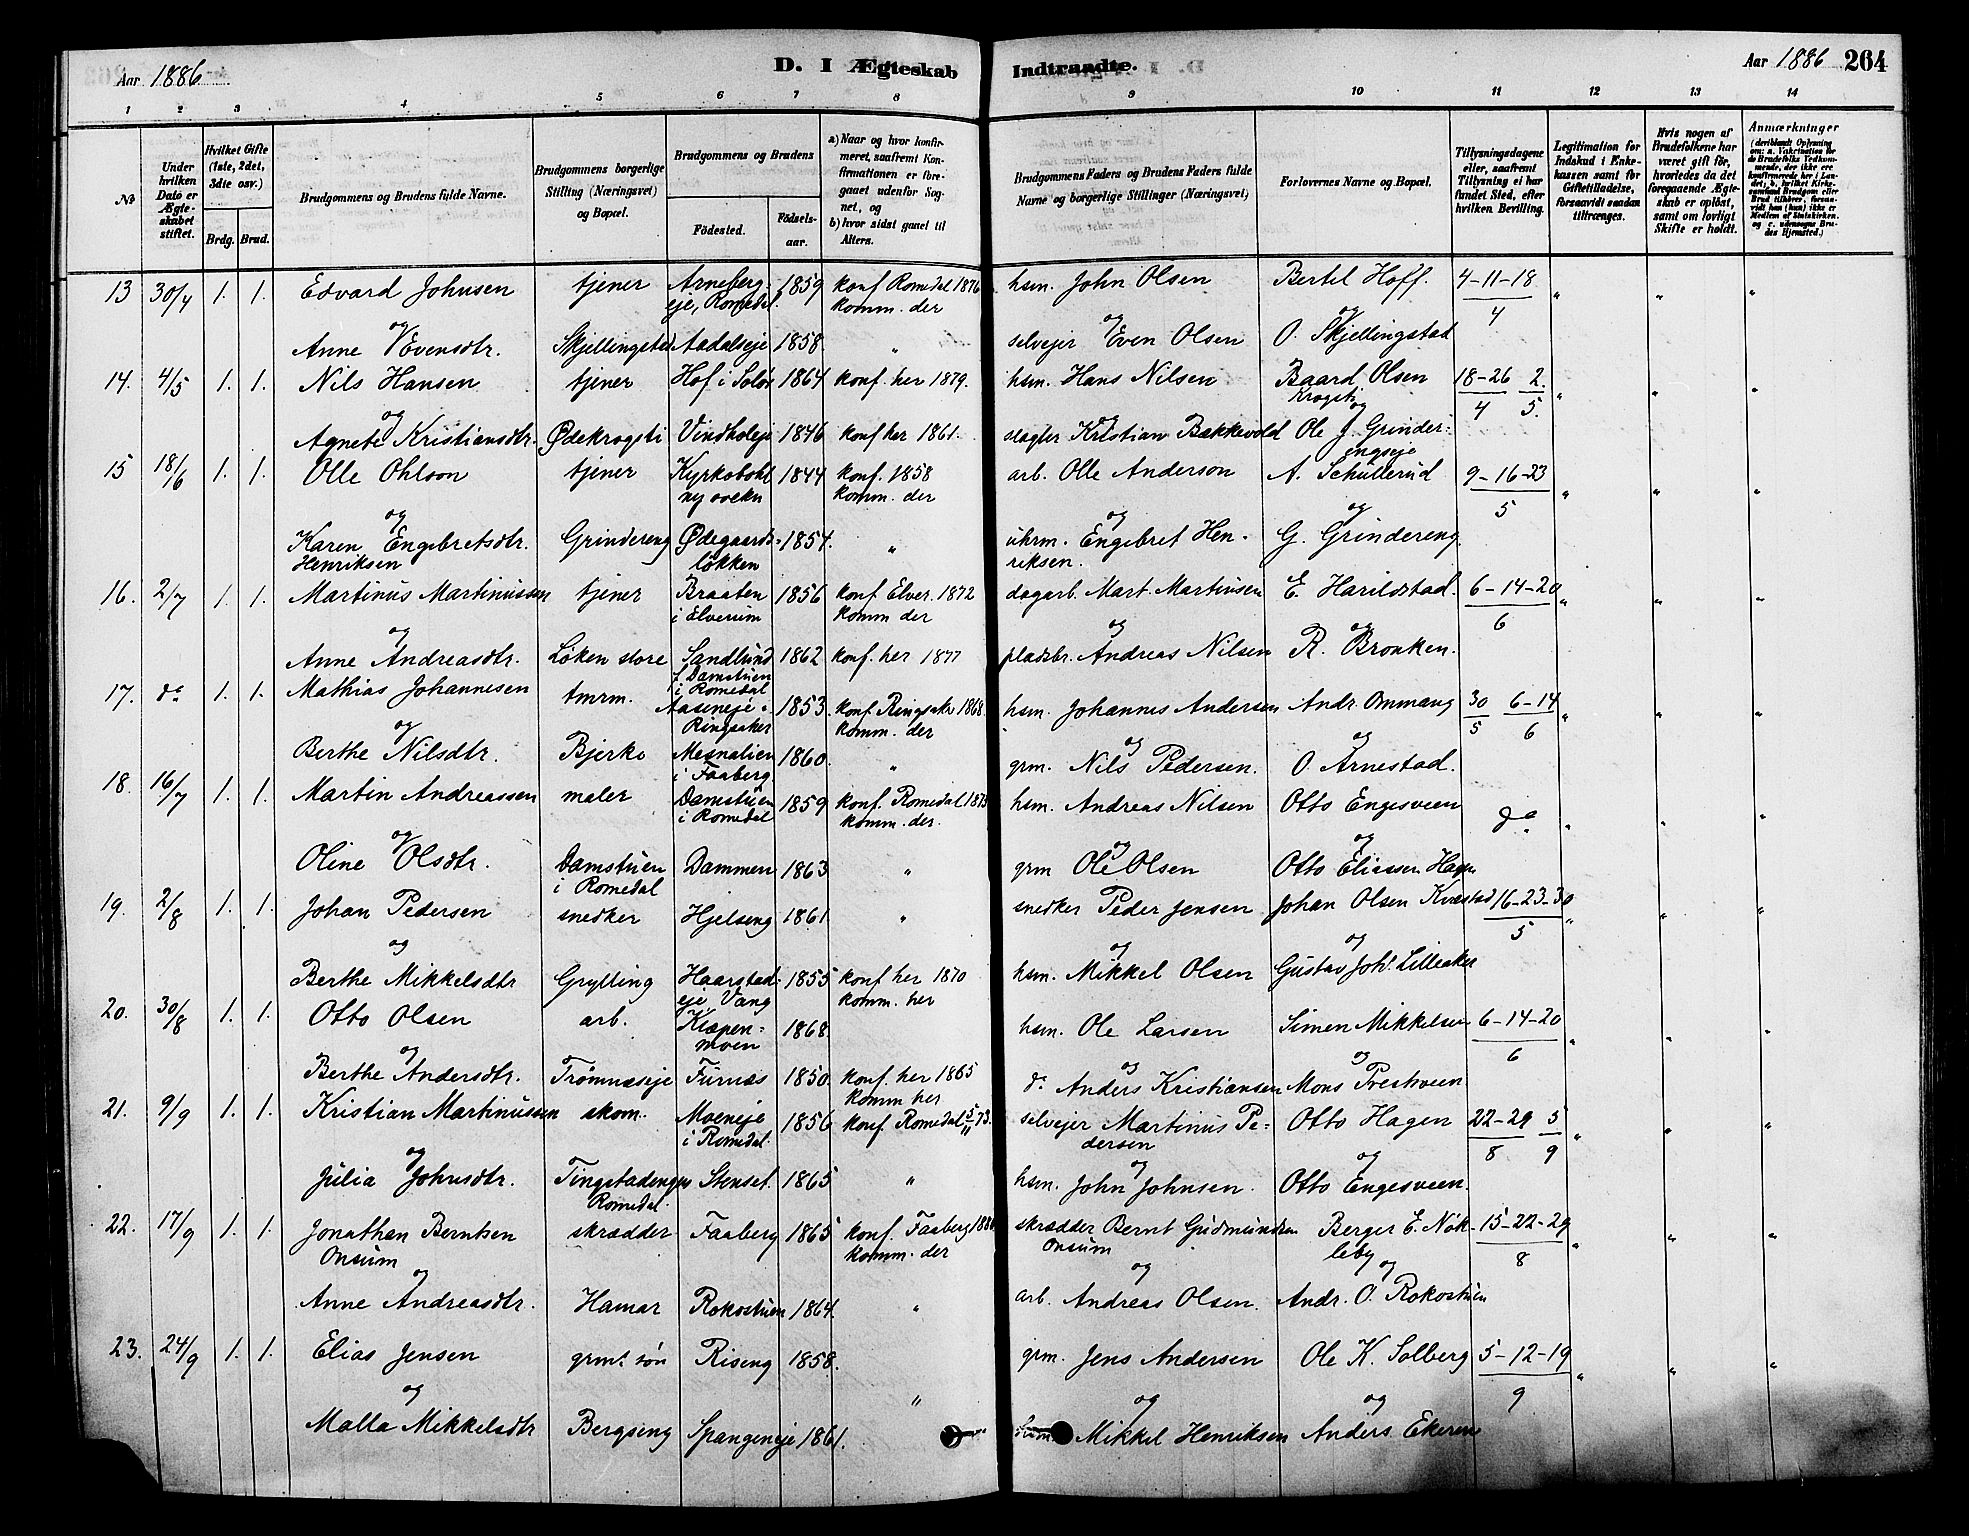 Aar 1886. D. I Ægteskab Indtraadte. Aar 1886 264
1 2 3 4 5 6 7 8 9 10 11 12 13 14
№
Under hvilken Dato er Ægteskabet stiftet.
Hvilket Gifte (1ste, 2det, 3die osv.)
Brdg. Brud.
Brudgommens og Brudens fulde Navne.
Brudgommens borgerlige Stilling (Næringsvei) og Bopæl.
Brudgommens og Brudens
Fødested. Fødselsaar.
a) Naar og hvor konfirmeret, saafremt Konfirmationen er foregaaet udenfor Sognet, og
b) hvor sidst gaaet til Alters.
Brudgommens Faders og Brudens Faders fulde Navne og borgerlige Stillinger (Næringsvei)
Forlovernes Navne og Bopæl.
Tillysningsdagene eller, saafremt Tillysning ei har fundet Sted, efter hvilken Bevilling.
Legitimation for Indskud i Enkekassen samt for Giftetilladelse, forsaavidt saadan tiltrænges.
Hvis nogen af Brudefolkene har været gift før, hvorledes da det foregaaende Ægteskab er opløst, samt om lovligt Skifte er holdt.
Anmærkninger
13 30/4 1. 1. Edvard Johnsen tjener Arneberg- 1859 konf Romedal 1876 hsm. John Olsen Bertel Hoff. 4-11-18
eje, Romedal. komm. der 4
og og og
Anne Evensdtr. Skjellingstad Aadalseje 1858 " selvejer Even Olsen O. Skjellingstad
14. 4/5 1. 1. Nils Hansen tjener Hof i Solør 1864 konf. her 1879. hsm. Hans Nilsen Baard Olsen 18-26 2.
Krogsti 4 5.
og og og
Agnete Kristiansdtr. Ødekrogsti Vindholeje 1846 konf her 1861. dagler Kristian Bakkevold Ole J. Grinder-
engseje
15 18/6 1. 1. Olle Ohlson tjener Kyrkobohl 1844 konf. 1858 arb. Olle Anderson A. Schüllerud 9-16-23
komm. der 5
og og og
Karen Engebretsdtr. Grindereng Ødegaards- 1854. " Engebret Hen- G. Grindereng
Henriksen løkken riksen.
16. 2/7 1. 1. Martinus Martinussen tjener Braaten 1856 konf Elver. 1872 dagarb. Mart. Martinsen E. Harildstad. 6-14-20
i Elverum komm der 6
og og og
Anne Andreasdtr. Løken store Sandlund 1862 konf. her 1877 pladsbr. Andreas Nilsen R. Bronken.
f Damstuen
i Romedal
17. do 1. 1. Mathias Johannesen tmrm. Aaseneje i 1853. konf Ringsaker 1868. hsm. Johannes Andersen Andr. Ommang 30 6-14
Ringsaker komm. der 5 6
og og og
Berthe Nilsdtr. Bjerke Mesnalien 1860. " grm. Nils Pedersen. O. Arnestad.
i Faaberg.
18. 16/7 1. 1. Martin Andreassen maler Damstuen 1859 konf. Romedal 1873 hsm. Andreas Nilsen Otto Engesveen do
i Romedal komm. der.
og og og
Oline Olsdtr. Damstuen Dammen 1863 " grm Ole Olsen Otto Eliassen Hagen
i Romedal
19. 2/8 1. 1. Johan Pedersen snedker Hjelseng 1861. " snedker Peder Jensen Johan Olsen Kvæstad 16-23-30
5
og og og
Berthe Mikkelsdtr Grylling Haarstad- 1855 konf her 1870 hsm. Mikkel Olsen Gustav Joh. Lilleaker
eje Vang komm. her
20. 30/8 1. 1. Otto Olsen arb. Kiæpen- 1868. hsm. Ole Larsen Simen Mikkelsen 6-14-20
moen 6
og og og
Berthe Andersdtr. Trømnæseje Furnæs 1850. konf. her 1865 do Anders Kristiansen Mons Prestveen
komm her
21. 9/9 1. 1. Kristian Martinussen skom. Moeneje 1856 konf. Romedal 5/11 73. selvejer Martinus Pe- Otto Hagen 22-29 5
i Romedal dersen 8 9
og og og
Julia Johnsdtr. Tingstadengen Stenset. 1865 " hsm. John Johnsen. Otto Engesveen.
Romedal
22. 17/9 1. 1. Jonathan Berntsen skrædder Faaberg 1865 konf. Faaberg skrædder Bernt Gudmundsen Berger E. Nøk- 15-22-29
Onsum komm. der Onsum leby 8
og og og
Anne Andreasdtr. Hamar Rokostuen 1864. " arb. Andreas Olsen. Andr. O. Rokostuen
23. 24/9 1. 1. Elias Jensen grm. søn Riseng 1858. grm. Jens Andersen Ole K. Solberg 5-12-19
9
og " og og
Malla Mikkelsdtr Bergseng Spangeneje 1861. Mikkel Henriksen Anders Ekeren